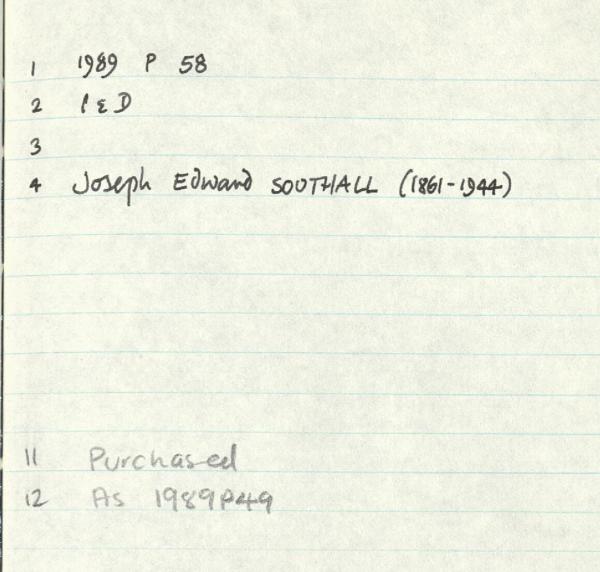 1 1989 P 58
2 P & D
3
4 Joseph Edward SOUTHALL (1861-1944)
11 Purchased
12 As 1989P49